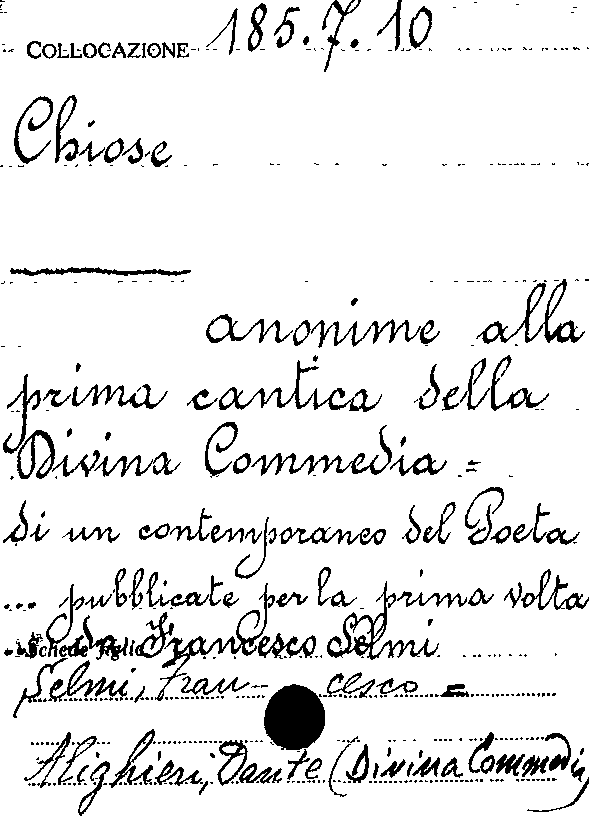 COLLOCAZIONE 185.7.10
Chiose
anonime alla
prima cantica della
Divina Commedia =
di un contemporaneo del Poeta
... pubblicate per la prima volta
da Francesco Selmi
Schede figlie
Selmi, Francesco =
Alighieri, Dante (Divina Commedia